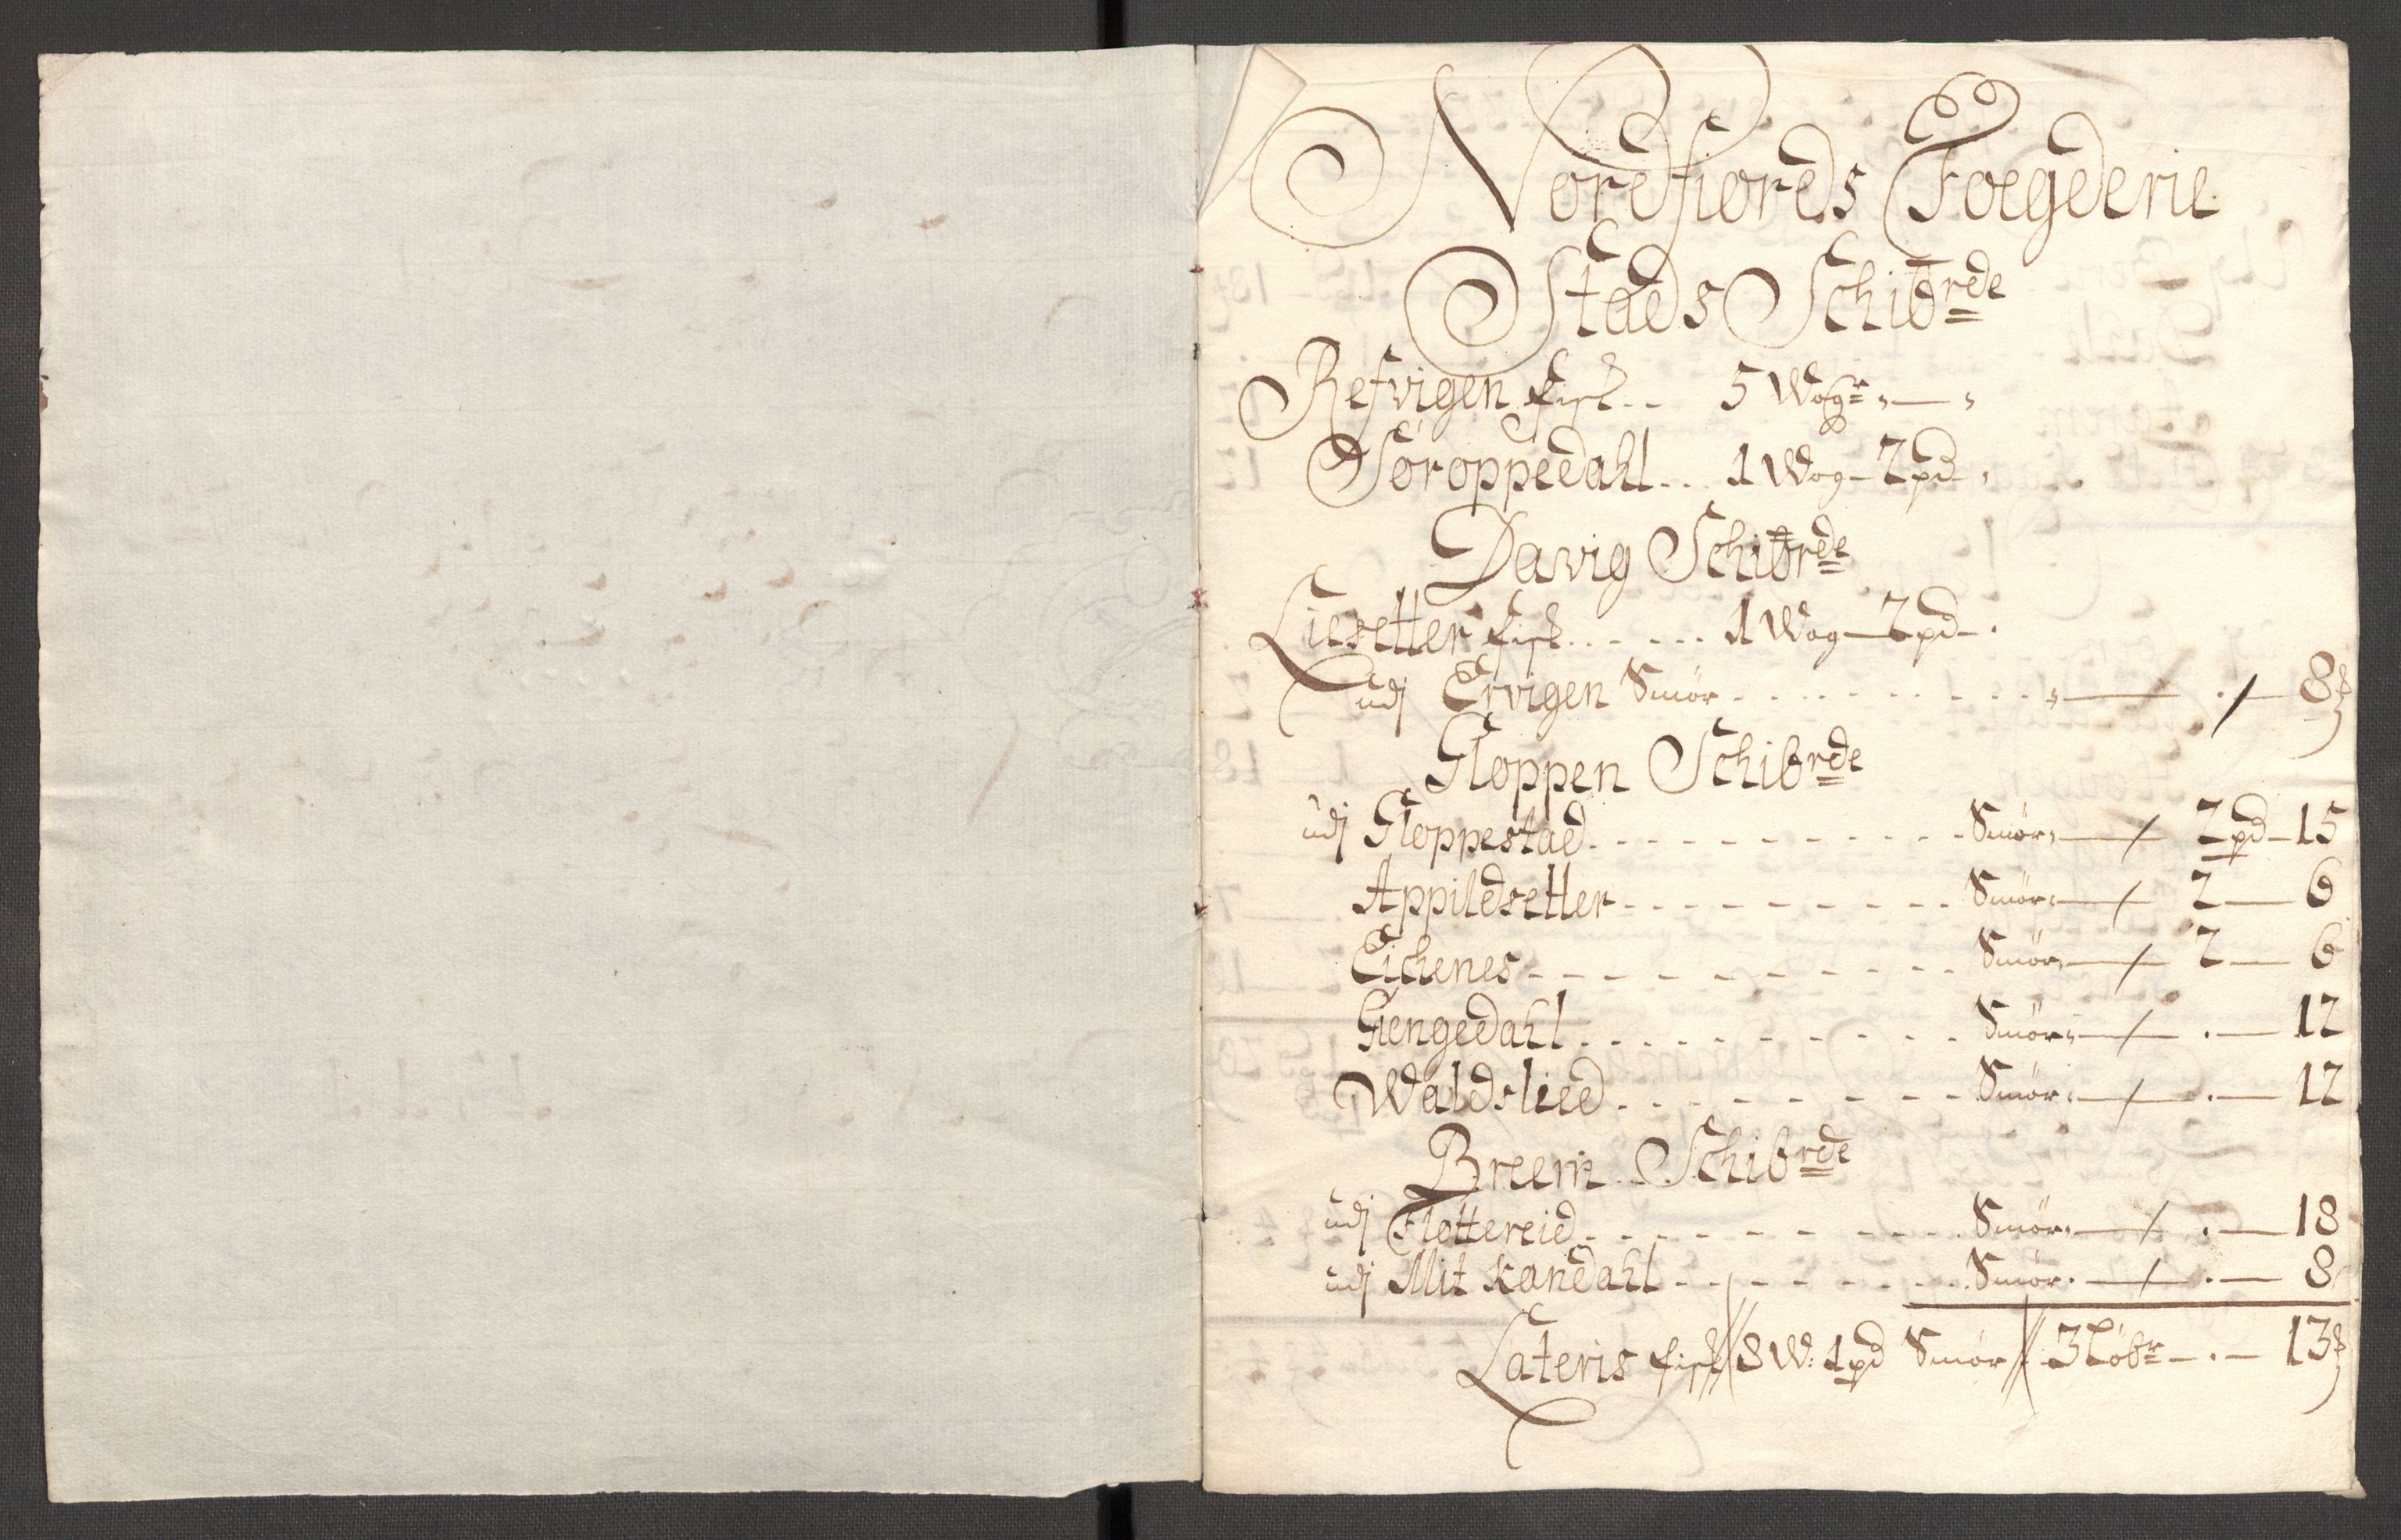 Nordfiords Foegderie
Stads Schibrde
Refvigen fisk.. 5 Wogr
Søroppedahl... 1 Wog - 2 pd
Davig Schibrde
Liesetter fisk...... 1 Wog - 2 pd
udj Ervigen Smør 8 ℔
Gloppen Schibrde
udj Gloppestad Smør 2 pd - 15
Appildsetter Smør 2 6
Eichenes Smør 2 6
Giengedahl Smør 12
Waldslied Smør 12
Breem Schibrde
udj Fløttereid Smør 18
udj Mit Kandahl Smør 8
Lateris fisk 8 W: 1 pd Smør 3 Löbr 13 ℔